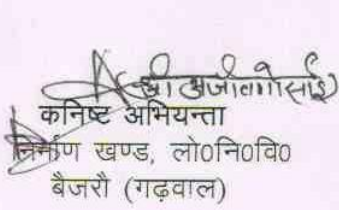 श्री अजीत गोसाई
कनिष्ट अभियन्ता
निर्माण खण्ड, लो0नि0वि0
बैजरौ (गढ़वाल)